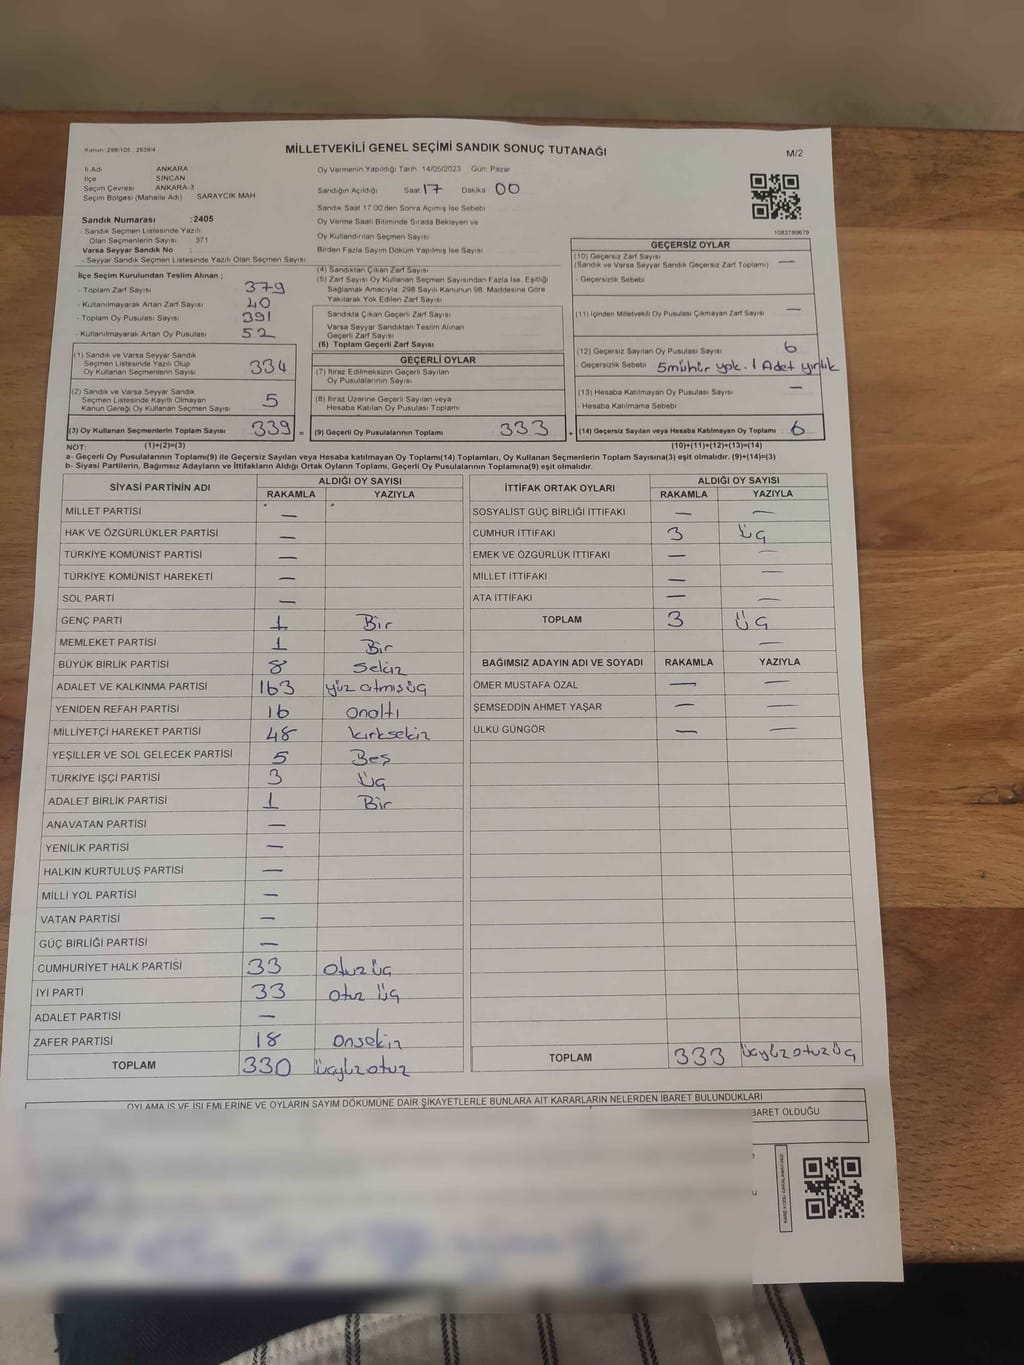 Kanun 298/105 , 2839/4
MİLLETVEKİLİ GENEL SEÇİMİ SANDIK SONUÇ TUTANAĞI
M/2
İl Adı ANKARA
İlçe SİNCAN
Seçim Çevresi ANKARA-3
Seçim Bölgesi (Mahalle Adı) SARAYCIK MAH
Sandık Numarası :2405
- Sandık Seçmen Listesinde Yazılı
Olan Seçmenlerin Sayısı 371
Varsa Seyyar Sandık No :
- Seyyar Sandık Seçmen Listesinde Yazılı Olan Seçmen Sayısı
Oy Vermenin Yapıldığı Tarih 14/05/2023 Gün: Pazar
Sandığın Açıldığı Saat 17 Dakika 00
Sandık Saat 17:00'den Sonra Açılmış İse Sebebi
Oy Verme Saati Bitiminde Sırada Bekleyen ve
Oy Kullandırılan Seçmen Sayısı
Birden Fazla Sayım Döküm Yapılmış İse Sayısı
1083780679
İlçe Seçim Kurulundan Teslim Alınan ;
- Toplam Zarf Sayısı 379
- Kullanılmayarak Artan Zarf Sayısı 40
- Toplam Oy Pusulası Sayısı 391
- Kullanılmayarak Artan Oy Pusulası 52
(1) Sandık ve Varsa Seyyar Sandık
Seçmen Listesinde Yazılı Olup
Oy Kullanan Seçmenlerin Sayısı 334
(2) Sandık ve Varsa Seyyar Sandık
Seçmen Listesinde Kayıtlı Olmayan
Kanun Gereği Oy Kullanan Seçmen Sayısı 5
(3) Oy Kullanan Seçmenlerin Toplam Sayısı 339 =
(4) Sandıktan Çıkan Zarf Sayısı
(5) Zarf Sayısı Oy Kullanan Seçmen Sayısından Fazla İse, Eşitliği
Sağlamak Amacıyla, 298 Sayılı Kanunun 98. Maddesine Göre
Yakılarak Yok Edilen Zarf Sayısı
Sandıkta Çıkan Geçerli Zarf Sayısı
Varsa Seyyar Sandıktan Teslim Alınan
Geçerli Zarf Sayısı
(6) Toplam Geçerli Zarf Sayısı
GEÇERLİ OYLAR
(7) İtiraz Edilmeksizin Geçerli Sayılan
Oy Pusulalarının Sayısı
(8) İtiraz Üzerine Geçerli Sayılan veya
Hesaba Katılan Oy Pusulası Toplamı
(9) Geçerli Oy Pusulalarının Toplamı 333 +
GEÇERSİZ OYLAR
(10) Geçersiz Zarf Sayısı
(Sandık ve Varsa Seyyar Sandık Geçersiz Zarf Toplamı) —
- Geçersizlik Sebebi
(11) İçinden Milletvekili Oy Pusulası Çıkmayan Zarf Sayısı —
(12) Geçersiz Sayılan Oy Pusulası Sayısı 6
- Geçersizlik Sebebi 5 mühür yok. 1 Adet yırtık
(13) Hesaba Katılmayan Oy Pusulası Sayısı —
- Hesaba Katılmama Sebebi
(14) Geçersiz Sayılan veya Hesaba Katılmayan Oy Toplamı 6
NOT: (1)+(2)=(3) (10)+(11)+(12)+(13)=(14)
a- Geçerli Oy Pusulalarının Toplamı(9) ile Geçersiz Sayılan veya Hesaba katılmayan Oy Toplamı(14) Toplamları, Oy Kullanan Seçmenlerin Toplam Sayısına(3) eşit olmalıdır. (9)+(14)=(3)
b- Siyasi Partilerin, Bağımsız Adayların ve İttifakların Aldığı Ortak Oyların Toplamı, Geçerli Oy Pusulalarının Toplamına(9) eşit olmalıdır.
SİYASİ PARTİNİN ADI ALDIĞI OY SAYISI
RAKAMLA YAZIYLA
MİLLET PARTİSİ —
HAK VE ÖZGÜRLÜKLER PARTİSİ —
TÜRKİYE KOMÜNİST PARTİSİ —
TÜRKİYE KOMÜNİST HAREKETİ —
SOL PARTİ —
GENÇ PARTİ 1 Bir
MEMLEKET PARTİSİ 1 Bir
BÜYÜK BİRLİK PARTİSİ 8 Sekiz
ADALET VE KALKINMA PARTİSİ 163 yüz atmış üç
YENİDEN REFAH PARTİSİ 16 onaltı
MİLLİYETÇİ HAREKET PARTİSİ 48 kırksekiz
YEŞİLLER VE SOL GELECEK PARTİSİ 5 Beş
TÜRKİYE İŞÇİ PARTİSİ 3 Üç
ADALET BİRLİK PARTİSİ 1 Bir
ANAVATAN PARTİSİ —
YENİLİK PARTİSİ —
HALKIN KURTULUŞ PARTİSİ —
MİLLİ YOL PARTİSİ —
VATAN PARTİSİ —
GÜÇ BİRLİĞİ PARTİSİ —
CUMHURİYET HALK PARTİSİ 33 otuz üç
İYİ PARTİ 33 otuz üç
ADALET PARTİSİ —
ZAFER PARTİSİ 18 onsekiz
TOPLAM 330 üçyüzotuz
İTTİFAK ORTAK OYLARI ALDIĞI OY SAYISI
RAKAMLA YAZIYLA
SOSYALİST GÜÇ BİRLİĞİ İTTİFAKI — —
CUMHUR İTTİFAKI 3 üç
EMEK VE ÖZGÜRLÜK İTTİFAKI — —
MİLLET İTTİFAKI — —
ATA İTTİFAKI — —
TOPLAM 3 üç
—
BAĞIMSIZ ADAYIN ADI VE SOYADI RAKAMLA YAZIYLA
ÖMER MUSTAFA ÖZAL — —
ŞEMSEDDİN AHMET YAŞAR — —
ÜLKÜ GÜNGÖR — —
TOPLAM 333 üçyüzotuzüç
OYLAMA İŞ VE İŞLEMLERİNE VE OYLARIN SAYIM DÖKÜMÜNE DAİR ŞİKAYETLERLE BUNLARA AİT KARARLARIN NELERDEN İBARET BULUNDUKLARI
BARET OLDUĞU